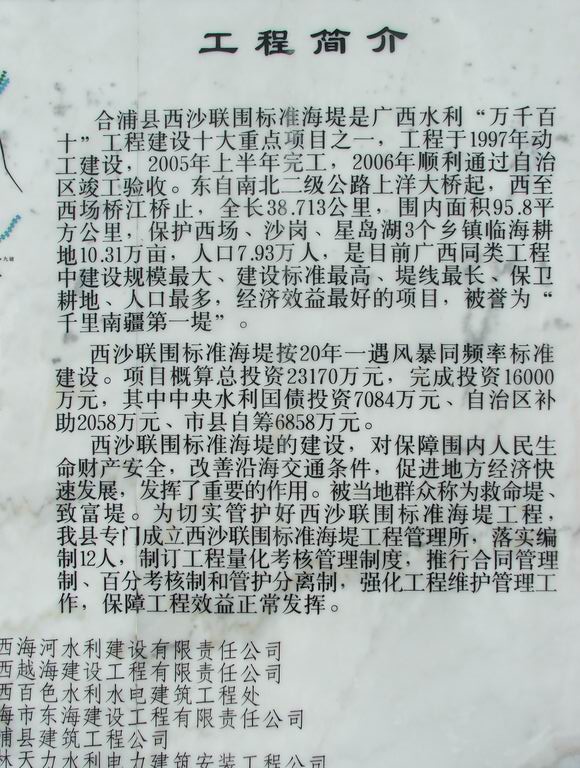 工程简介
合浦县西沙联围标准海堤是广西水利“万千百
十”工程建设十大重点项目之一，工程于1997年动
工建设，2005年上半年完工，2006年顺利通过自治
区竣工验收。东自南北二级公路上洋大桥起，西至
西场桥江桥止，全长38.713公里，围内面积95.8平
方公里，保护西场、沙岗、星岛湖3个乡镇临海耕
地10.31万亩，人口7.93万人，是目前广西同类工程
中建设规模最大、建设标准最高、堤线最长、保卫
耕地、人口最多，经济效益最好的项目，被誉为“
千里南疆第一堤”。
西沙联围标准海堤按20年一遇风暴同频率标准
建设。项目概算总投资23170万元，完成投资16000
万元，其中中央水利国债投资7084万元、自治区补
助2058万元、市县自筹6858万元。
西沙联围标准海堤的建设，对保障围内人民生
命财产安全，改善沿海交通条件，促进地方经济快
速发展，发挥了重要的作用。被当地群众称为救命堤、
致富堤。为切实管护好西沙联围标准海堤工程，
我县专门成立西沙联围标准海堤工程管理所，落实编
制12人，制订工程量化考核管理制度，推行合同管理
制、百分考核制和管护分离制，强化工程维护管理工
作，保障工程效益正常发挥。
西海河水利建设有限责任公司
西越海建设工程有限责任公司
西百色水利水电建筑工程处
海市东海建设工程有限责任公司
浦县建筑工程公司
林天力水利电力建筑安装工程公司